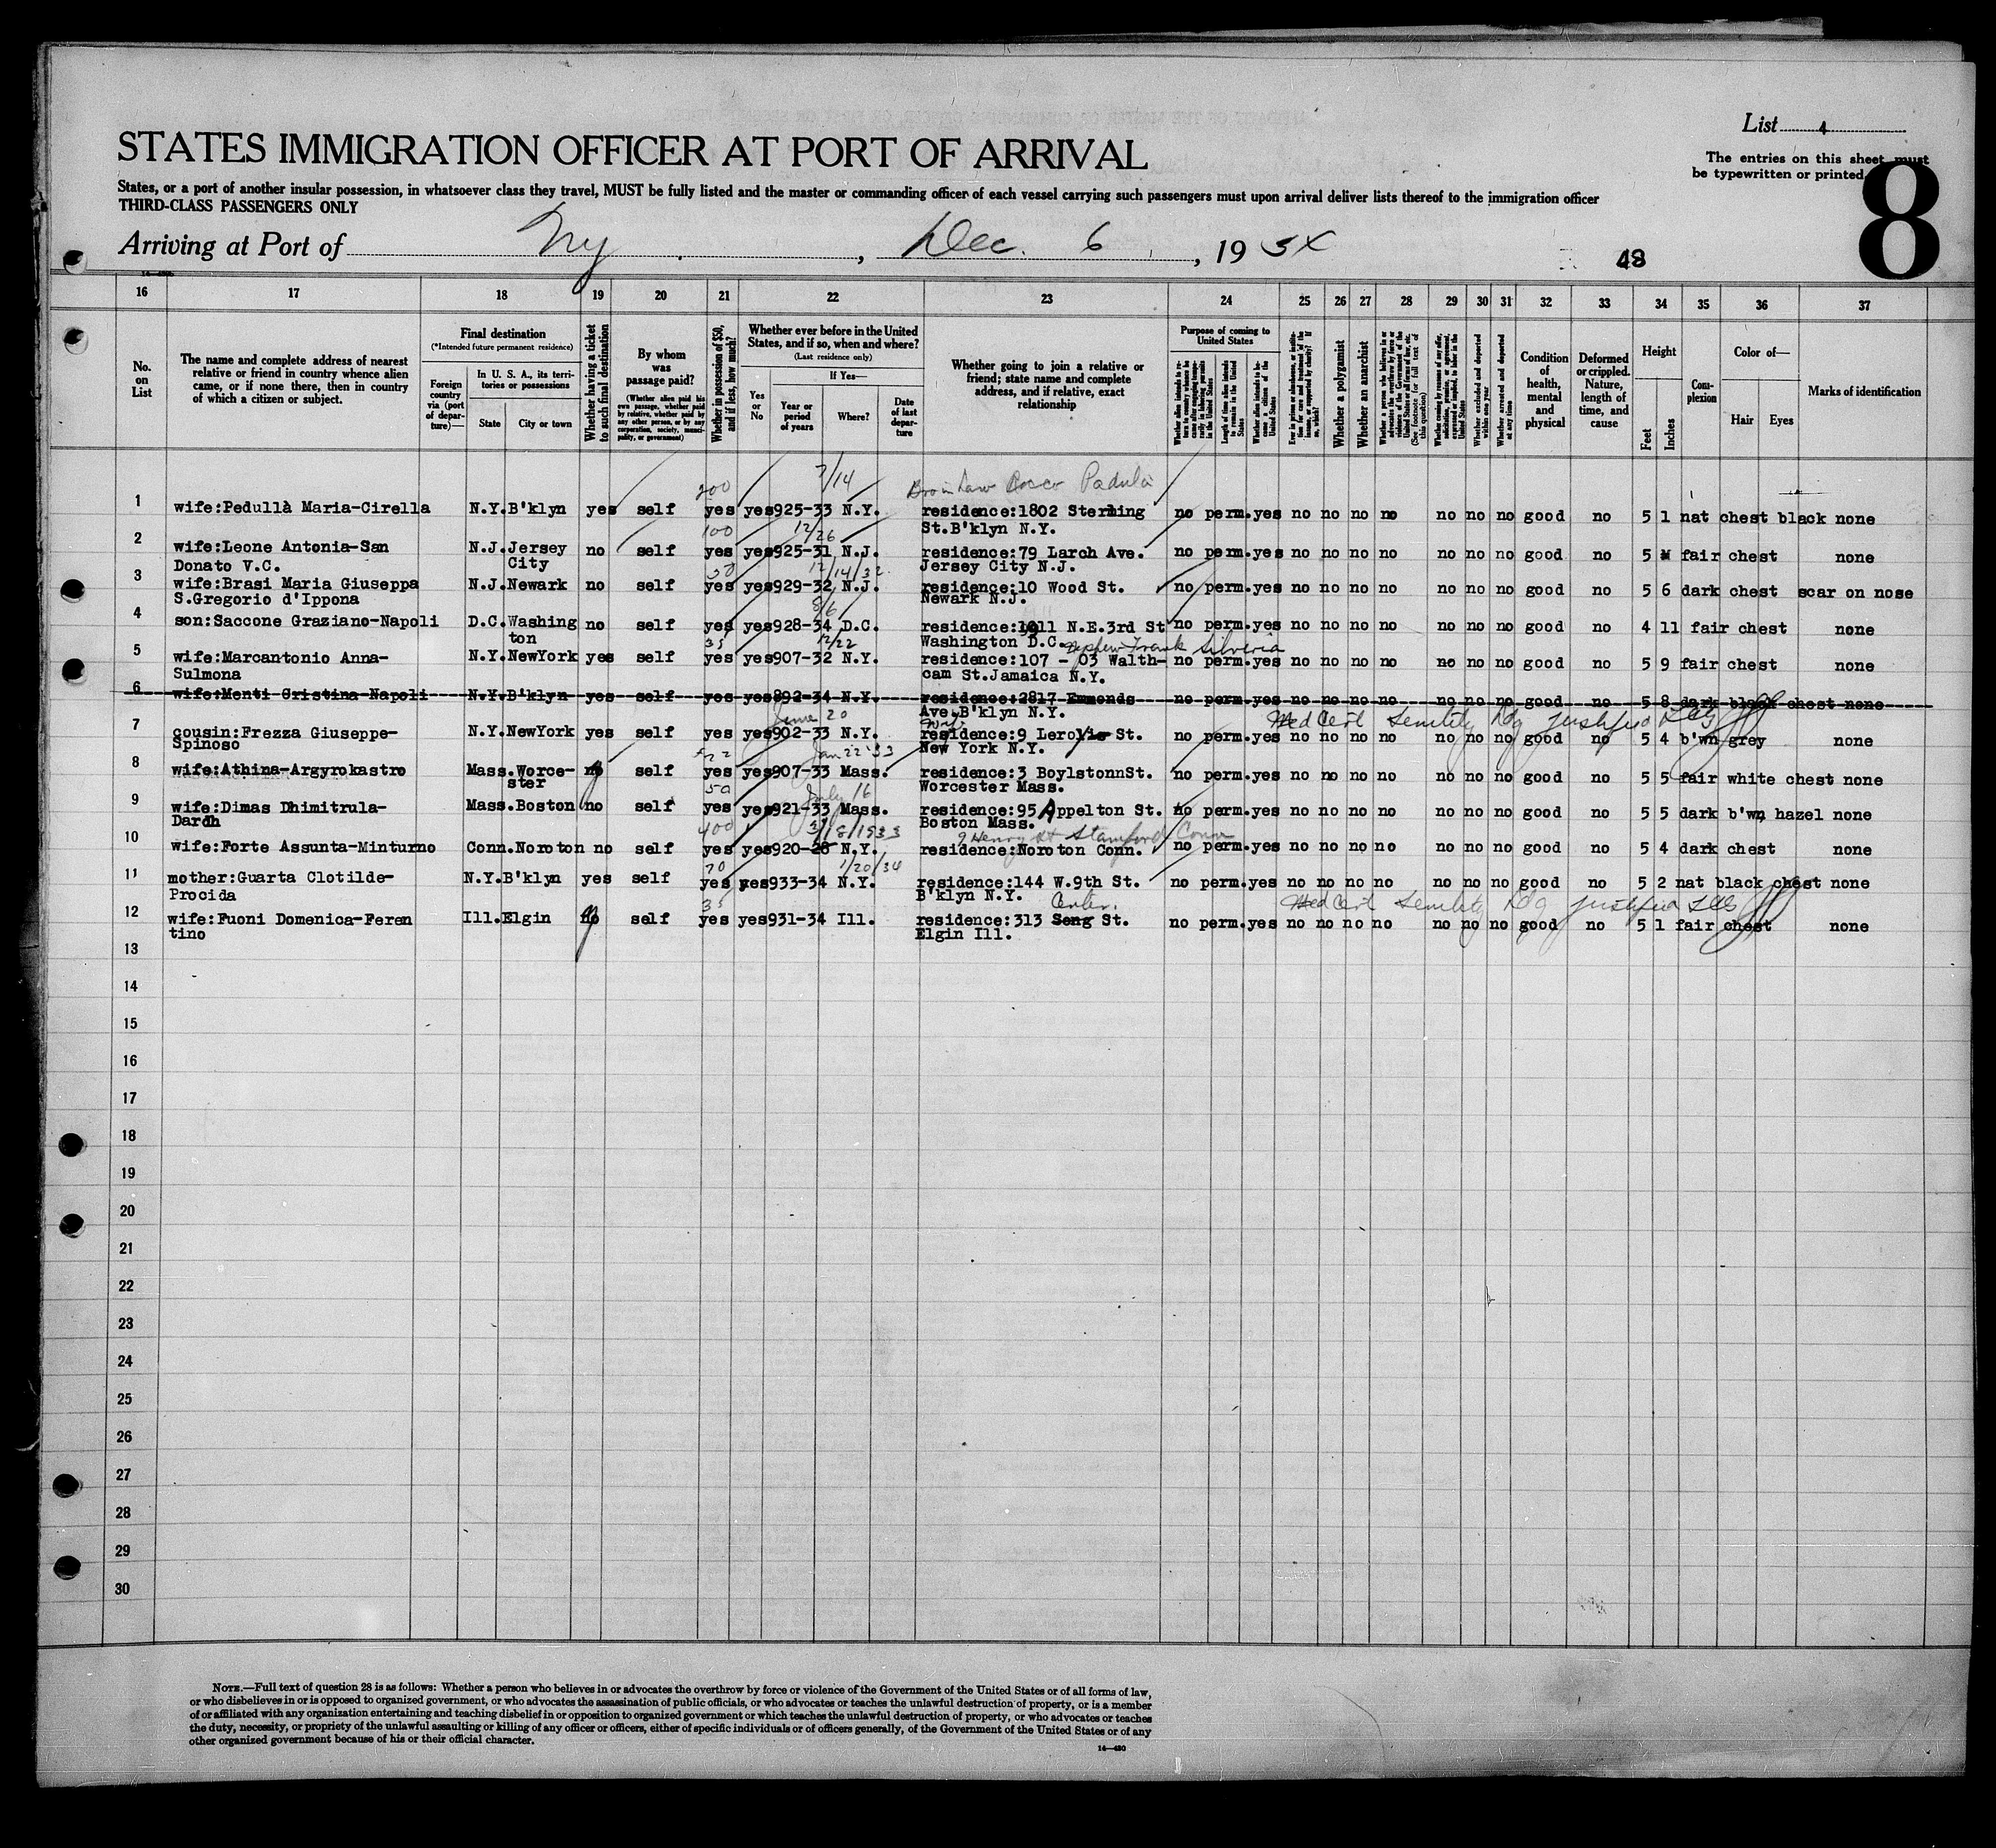 List 4
STATES IMMIGRATION OFFICER AT PORT OF ARRIVAL
The entries on this sheet must
be typewritten or printed
8
States, or a port of another insular possession, in whatsoever class they travel, MUST be fully listed and the master or commanding officer of each vessel carrying such passengers must upon arrival deliver lists thereof to the immigration officer
THIRD-CLASS PASSENGERS ONLY
Arriving at Port of Ny, Dec. 6, 1934
48
16 17 18 19 20 21 22 23 24 25 26 27 28 29 30 31 32 33 34 35 36 37
No. on List
The name and complete address of nearest relative or friend in country whence alien came, or if none there, then in country of which a citizen or subject.
Final destination
(*Intended future permanent residence)
Foreign country via (port of departure)—
In U. S. A., its territories or possessions
State
City or town
Whether having a ticket to such final destination
By whom was passage paid?
(Whether alien paid his own passage, whether paid by relative, whether paid by any other person, or by any corporation, society, municipality, or government)
Whether in possession of $50, and if less, how much?
Whether ever before in the United States, and if so, when and where?
(Last residence only)
Yes or No
If Yes—
Year or period of years
Where?
Date of last departure
Whether going to join a relative or friend; state name and complete address, and if relative, exact relationship
Purpose of coming to United States
Length of time alien intends to remain in the United States
Whether alien intends to become a citizen of the United States
Whether a polygamist
Whether an anarchist
Whether excluded and deported within one year
Whether arrested and deported at any time
Condition of health, mental and physical
Deformed or crippled. Nature, length of time, and cause
Height
Feet
Inches
Complexion
Color of—
Hair
Eyes
Marks of identification
200 7/14 Padula
1 wife:Pedullà Maria-Cirella N.Y. B'klyn yes self yes yes 925-33 N.Y. residence:1802 Sterling no perm. yes no no no no no no no good no 5 1 nat chest black none
St.B'klyn N.Y.
100 12/26
2 wife:Leone Antonia-San N.J. Jersey no self yes yes 925-31 N.J. residence:79 Larch Ave. no perm. yes no no no no no no no good no 5 fair chest none
Donato V.C. City Jersey City N.J.
50 12/14/32
3 wife:Brasi Maria Giuseppa N.J. Newark no self yes yes 929-32 N.J. residence:10 Wood St. no perm. yes no no no no no no no good no 5 6 dark chest scar on nose
S.Gregorio d'Ippona Newark N.J.
8/6
4 son:Saccone Graziano-Napoli D.C. Washing no self yes yes 928-34 D.C. residence:1011 N.E.3rd St no perm. yes no no no no no no no good no 4 11 fair chest none
ton Washington D.C.
35 12/22 Nephew Frank Silveria
5 wife:Marcantonio Anna- N.Y. NewYork yes self yes yes 907-32 N.Y. residence:107 - 03 Walth- no perm. yes no no no no no no no good no 5 9 fair chest none
Sulmona cam St.Jamaica N.Y.
6 wife:Menti Cristina-Napoli N.Y. B'klyn yes self yes yes 892-34 N.Y. residence:2817 Emmonds no perm. yes no no no no no no no good no 5 8 dark black chest none
Ave.B'klyn N.Y.
June 20 Med Cert Senility Ldg justified
7 cousin:Frezza Giuseppe- N.Y. NewYork yes self yes yes 902-33 N.Y. residence:9 Leroy St. no perm. yes no no no no no no no good no 5 4 b'wn grey none
Spinoso New York N.Y.
Jan 22 '33
8 wife:Athina-Argyrokastro Mass. Worce- no self yes yes 907-33 Mass. residence:3 BoylstonnSt. no perm. yes no no no no no no no good no 5 5 fair white chest none
ster Worcester Mass.
50 July 16
9 wife:Dimas Dhimitrula- Mass. Boston no self yes yes 921-33 Mass. residence:95 Appelton St. no perm. yes no no no no no no no good no 5 5 dark b'wn hazel none
Dardh Boston Mass.
400 3/18/1933 9 Henry St Stamford Conn
10 wife:Forte Assunta-Minturno Conn. Noroton no self yes yes 920-28 N.Y. residence:Noroton Conn. no perm. yes no no no no no no no good no 5 4 dark chest none
70 1/20/34
11 mother:Guarta Clotilde- N.Y. B'klyn yes self yes yes 933-34 N.Y. residence:144 W.9th St. no perm. yes no no no no no no no good no 5 2 nat black chest none
Procida B'klyn N.Y.
35 Center. Med Cert Senility Ldg justified
12 wife:Fuoni Domenica-Feren Ill. Elgin no self yes yes 931-34 Ill. residence:313 Song St. no perm. yes no no no no no no no good no 5 1 fair chest none
tino Elgin Ill.
13
14
15
16
17
18
19
20
21
22
23
24
25
26
27
28
29
30
NOTE.—Full text of question 28 is as follows: Whether a person who believes in or advocates the overthrow by force or violence of the Government of the United States or of all forms of law,
or who disbelieves in or is opposed to organized government, or who advocates the assassination of public officials, or who advocates or teaches the unlawful destruction of property, or is a member
of or affiliated with any organization entertaining and teaching disbelief in or opposition to organized government or which teaches the unlawful destruction of property, or who advocates or teaches
the duty, necessity, or propriety of the unlawful assaulting or killing of any officer or officers, either of specific individuals or of officers generally, of the Government of the United States or of any
other organized government because of his or their official character.
14—430